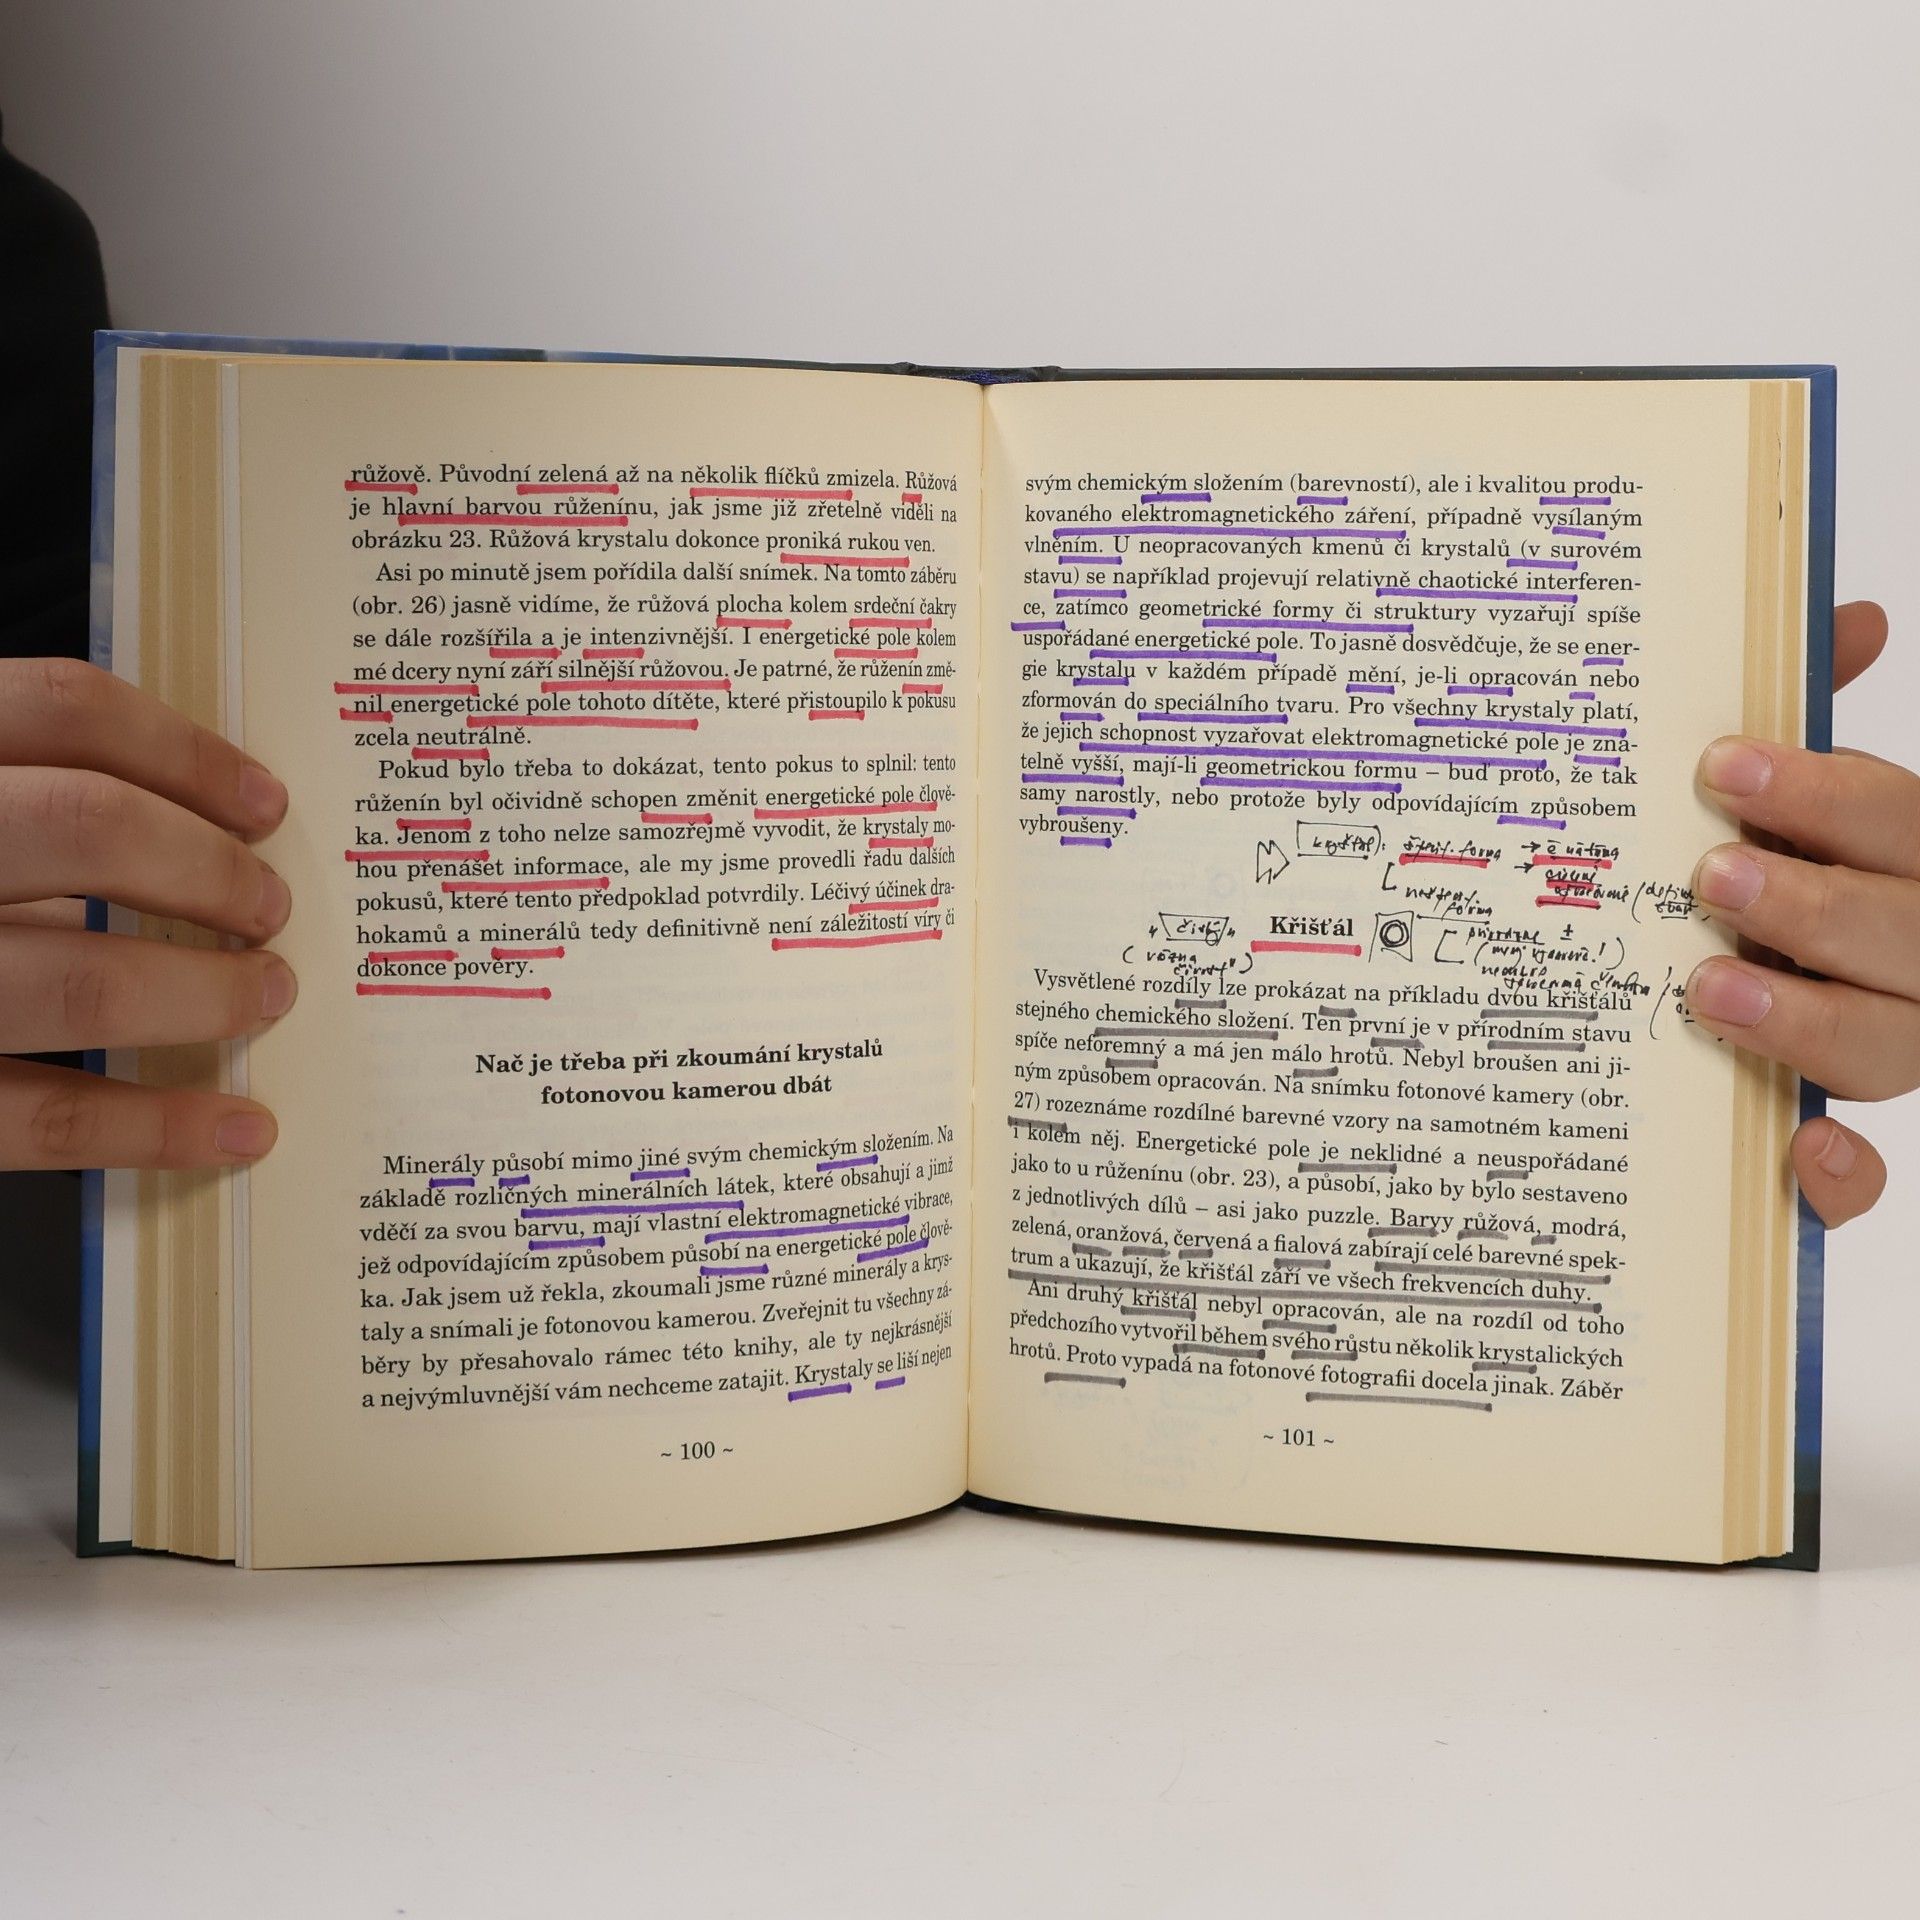 růžově. Původní zelená až na několik flíčků zmizela. Růžová
je hlavní barvou růženínu, jak jsme již zřetelně viděli na
obrázku 23. Růžová krystalu dokonce proniká rukou ven.
Asi po minutě jsem pořídila další snímek. Na tomto záběru
(obr. 26) jasně vidíme, že růžová plocha kolem srdeční čakry
se dále rozšířila a je intenzivnější. I energetické pole kolem
mé dcery nyní září silnější růžovou. Je patrné, že růženín změ-
nil energetické pole tohoto dítěte, které přistoupilo k pokusu
zcela neutrálně.
Pokud bylo třeba to dokázat, tento pokus to splnil: tento
růženín byl očividně schopen změnit energetické pole člově-
ka. Jenom z toho nelze samozřejmě vyvodit, že krystaly mo-
hou přenášet informace, ale my jsme provedli řadu dalších
pokusů, které tento předpoklad potvrdily. Léčivý účinek dra-
hokamů a minerálů tedy definitivně není záležitostí víry či
dokonce pověry.
Nač je třeba při zkoumání krystalů
fotonovou kamerou dbát
Minerály působí mimo jiné svým chemickým složením. Na
základě rozličných minerálních látek, které obsahují a jimž
vděčí za svou barvu, mají vlastní elektromagnetické vibrace,
jež odpovídajícím způsobem působí na energetické pole člově-
ka. Jak jsem už řekla, zkoumali jsme různé minerály a krys-
taly a snímali je fotonovou kamerou. Zveřejnit tu všechny zá-
běry by přesahovalo rámec této knihy, ale ty nejkrásnější
a nejvýmluvnější vám nechceme zatajit. Krystaly se liší nejen
~ 100 ~
svým chemickým složením (barevností), ale i kvalitou produ-
kovaného elektromagnetického záření, případně vysílaným
vlněním. U neopracovaných kmenů či krystalů (v surovém
stavu) se například projevují relativně chaotické interferen-
ce, zatímco geometrické formy či struktury vyzařují spíše
uspořádané energetické pole. To jasně dosvědčuje, že se ener-
gie krystalu v každém případě mění, je-li opracován nebo
zformován do speciálního tvaru. Pro všechny krystaly platí,
že jejich schopnost vyzařovat elektromagnetické pole je zna-
telně vyšší, mají-li geometrickou formu – buď proto, že tak
samy narostly, nebo protože byly odpovídajícím způsobem
vybroušeny.
forma
forma
Křišťál
Vysvětlené rozdíly lze prokázat na příkladu dvou křišťálů
stejného chemického složení. Ten první je v přírodním stavu
spíče neforemný a má jen málo hrotů. Nebyl broušen ani ji-
ným způsobem opracován. Na snímku fotonové kamery (obr.
27) rozeznáme rozdílné barevné vzory na samotném kameni
i kolem něj. Energetické pole je neklidné a neuspořádané
jako to u růženínu (obr. 23), a působí, jako by bylo sestaveno
z jednotlivých dílů – asi jako puzzle. Barvy růžová, modrá,
zelená, oranžová, červená a fialová zabírají celé barevné spek-
trum a ukazují, že křišťál září ve všech frekvencích duhy.
Ani druhý křišťál nebyl opracován, ale na rozdíl od toho
předchozího vytvořil během svého růstu několik krystalických
hrotů. Proto vypadá na fotonové fotografii docela jinak. Záběr
~ 101 ~